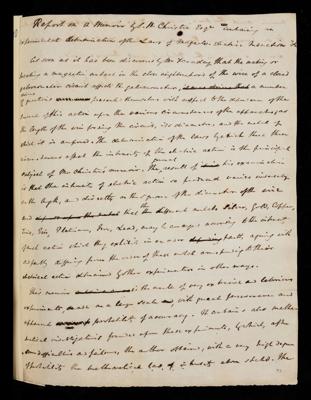 Report on a Memoir by S. H. Christie Esqre. containing an
experimental determination of the Laws of Magneto-electric Induction
As soon as it has been discovered by Mr Faraday that the making or
breaking a magnetic contact in the close neighbourhood of the wire of a closed
galvanometric circuit affects the galvanometer, a number
of questions present themselves with respect to the dependence of the
power of this action upon the various circumstances of the apparatus, as
the length of the wire forming the circuit, its diameter, and the metal of
which it is composed. The determination of the laws by which these
affect the intensity of the electric action is the principal
subject of Mr Christie's memoir. The general result of his examination
is that the intensity of electric action so produced varies inversely
as the length, and directly as the square of the diameter of the wire
and that the different metals, Silver, Gold, Copper,
Zinc, Tin, Platinum, Iron, Lead, may be arranged according to the intensity
of such action which they exhibit in an order partly agreeing with
and partly differing from the order of these metals according to their
electrical action obtained by other experimenters in other ways.
This memoir is the result of very extensive and laborious
experiments, made on a large scale and with great perseverance and
apparent probability of accuracy. It contains also mathe-
matical investigations founded upon these experiments, by which, after
difficulties and failures, the author obtains, with a very high degree
of probability the mathematical law, above stated. The